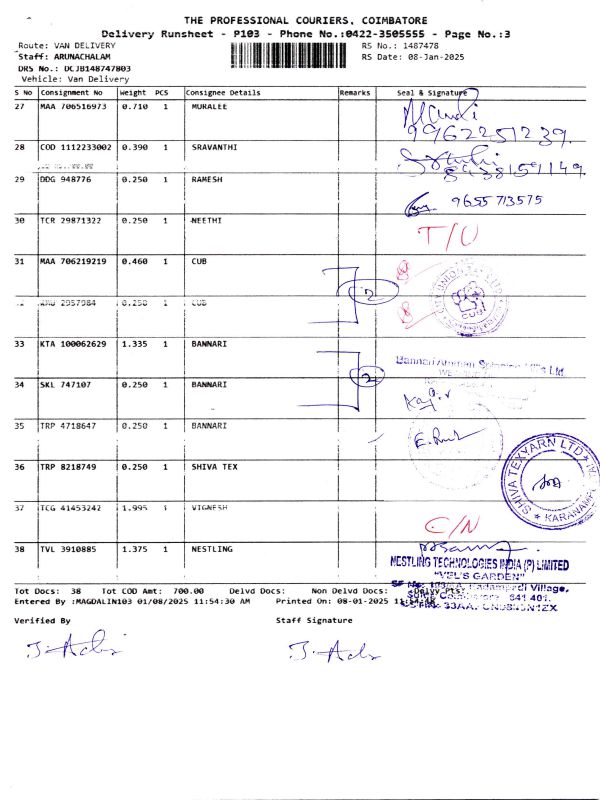 THE PROFESSIONAL COURIERS, COIMBATORE
Delivery Runsheet - P103 - Phone No.:0422-3505555 - Page No.:3
Route: VAN DELIVERY RS No.: 1487478
Staff: ARUNACHALAM RS Date: 08-Jan-2025
DRS No.: DCJB148747803
Vehicle: Van Delivery
S No Consignment No Weight PCS Consignee Details Remarks Seal & Signature
27 MAA 706516973 0.710 1 MURALEE
9962251239.
28 COD 1112233002 0.390 1 SRAVANTHI
29 DDG 948776 0.250 1 RAMESH
9655713575
30 TCR 29871322 0.250 1 NEETHI T/U
31 MAA 706219219 0.460 1 CUB
2
2957984 0.250 1 CUB
33 KTA 100062629 1.335 1 BANNARI
2
34 SKL 747107 0.250 1 BANNARI
35 TRP 4718647 1 BANNARI
36 TRP 8218749 0.250 1 SHIVA TEX
SHIVA TEXYARN LTD
37 TCG 41453242 1.995 1 VIGNESH C/N
38 TVL 3910885 1.375 1 NESTLING
NESTLING TECHNOLOGIES INDIA (P) LIMITED
"VEL'S GARDEN"
Tot Docs: 38 Tot COD Amt: 700.00 Delvd Docs: Non Delvd Docs: Delvy Pts:
Entered By :MAGDALIN103 01/08/2025 11:54:30 AM Printed On: 08-01-2025
Verified By Staff Signature